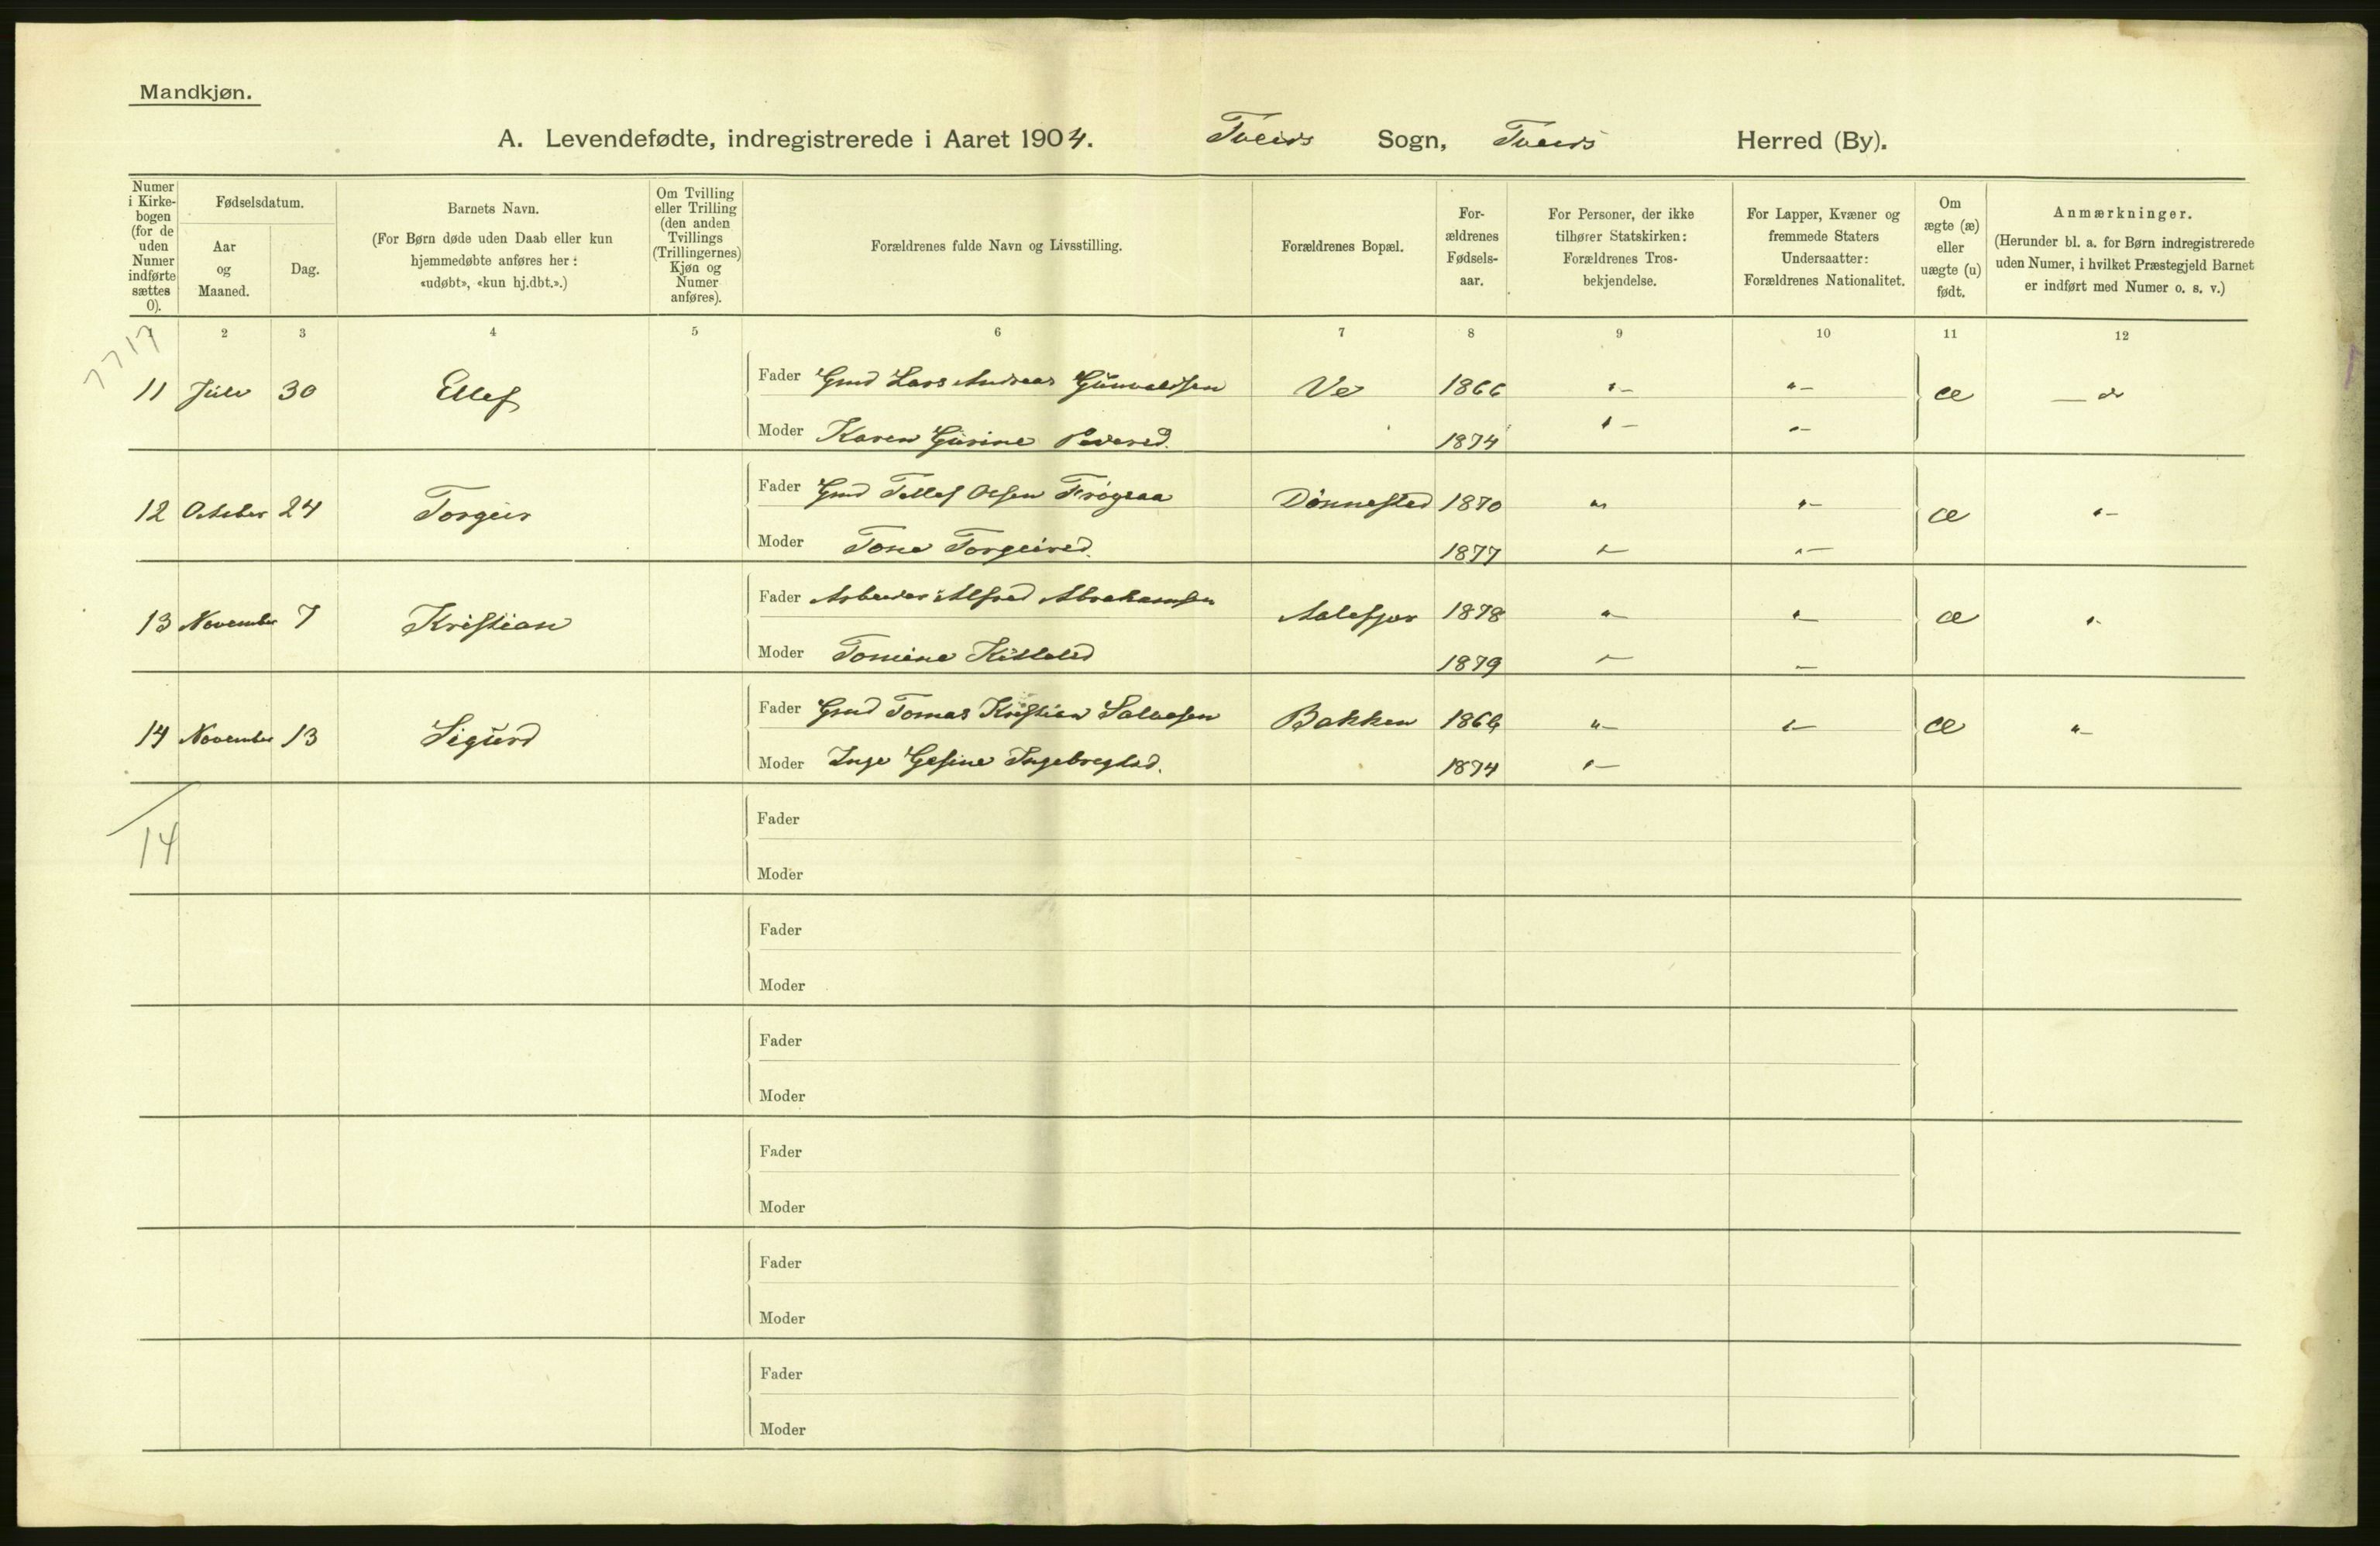 Mandkjøn.
A. Levendefødte, indregistrerede i Aaret 1904. Tveids Sogn, Tveids Herred (By).
Numer i Kirkebogen (for de uden Numer indførte sættes 0).
Fødselsdatum.
Aar og Maaned.
Dag.
Barnets Navn.
(For Børn døde uden Daab eller kun hjemmedøbte anføres her: «udøbt», «kun hj.dbt.».)
Om Tvilling eller Trilling (den anden Tvillings (Trillingernes) Kjøn og Numer anføres).
Forældrenes fulde Navn og Livsstilling.
Forældrenes Bopæl.
Forældrenes Fødselsaar.
For Personer, der ikke tilhører Statskirken: Forældrenes Trosbekjendelse.
For Lapper, Kvæner og fremmede Staters Undersaatter: Forældrenes Nationalitet.
Om ægte (æ) eller uægte (u) født.
Anmærkninger.
(Herunder bl. a. for Børn indregistrerede uden Numer, i hvilket Præstegjeld Barnet er indført med Numer o. s. v.)
2 3 4 5 6 7 8 9 10 11 12
7717
11 Juli 30 Ellef Fader Gmd Lars Andreas Gunvaldsen Ve 1866 "- "- æ
Moder Karen Gurine Pedersd. 1874 "- "-
12 October 24 Torgeir Fader Gmd Tellef Olsen Frøysaa Dønnestad 1870 " "- æ "-
Moder Tone Torgeirsd. 1877 "- "-
13 November 7 Kristian Fader Arbeider Alfred Abrahamsen Aalefjær 1878 "- "- æ "-
Moder Tomine Killelsd 1879 "- –
14 November 13 Sigurd Fader Gmd Tomas Kristian Salvesen Bakken 1866 "- "- æ "-
Moder Inge Gesine Ingebregtsd. 1874 "-
14
Fader
Moder
Fader
Moder
Fader
Moder
Fader
Moder
Fader
Moder
Fader
Moder